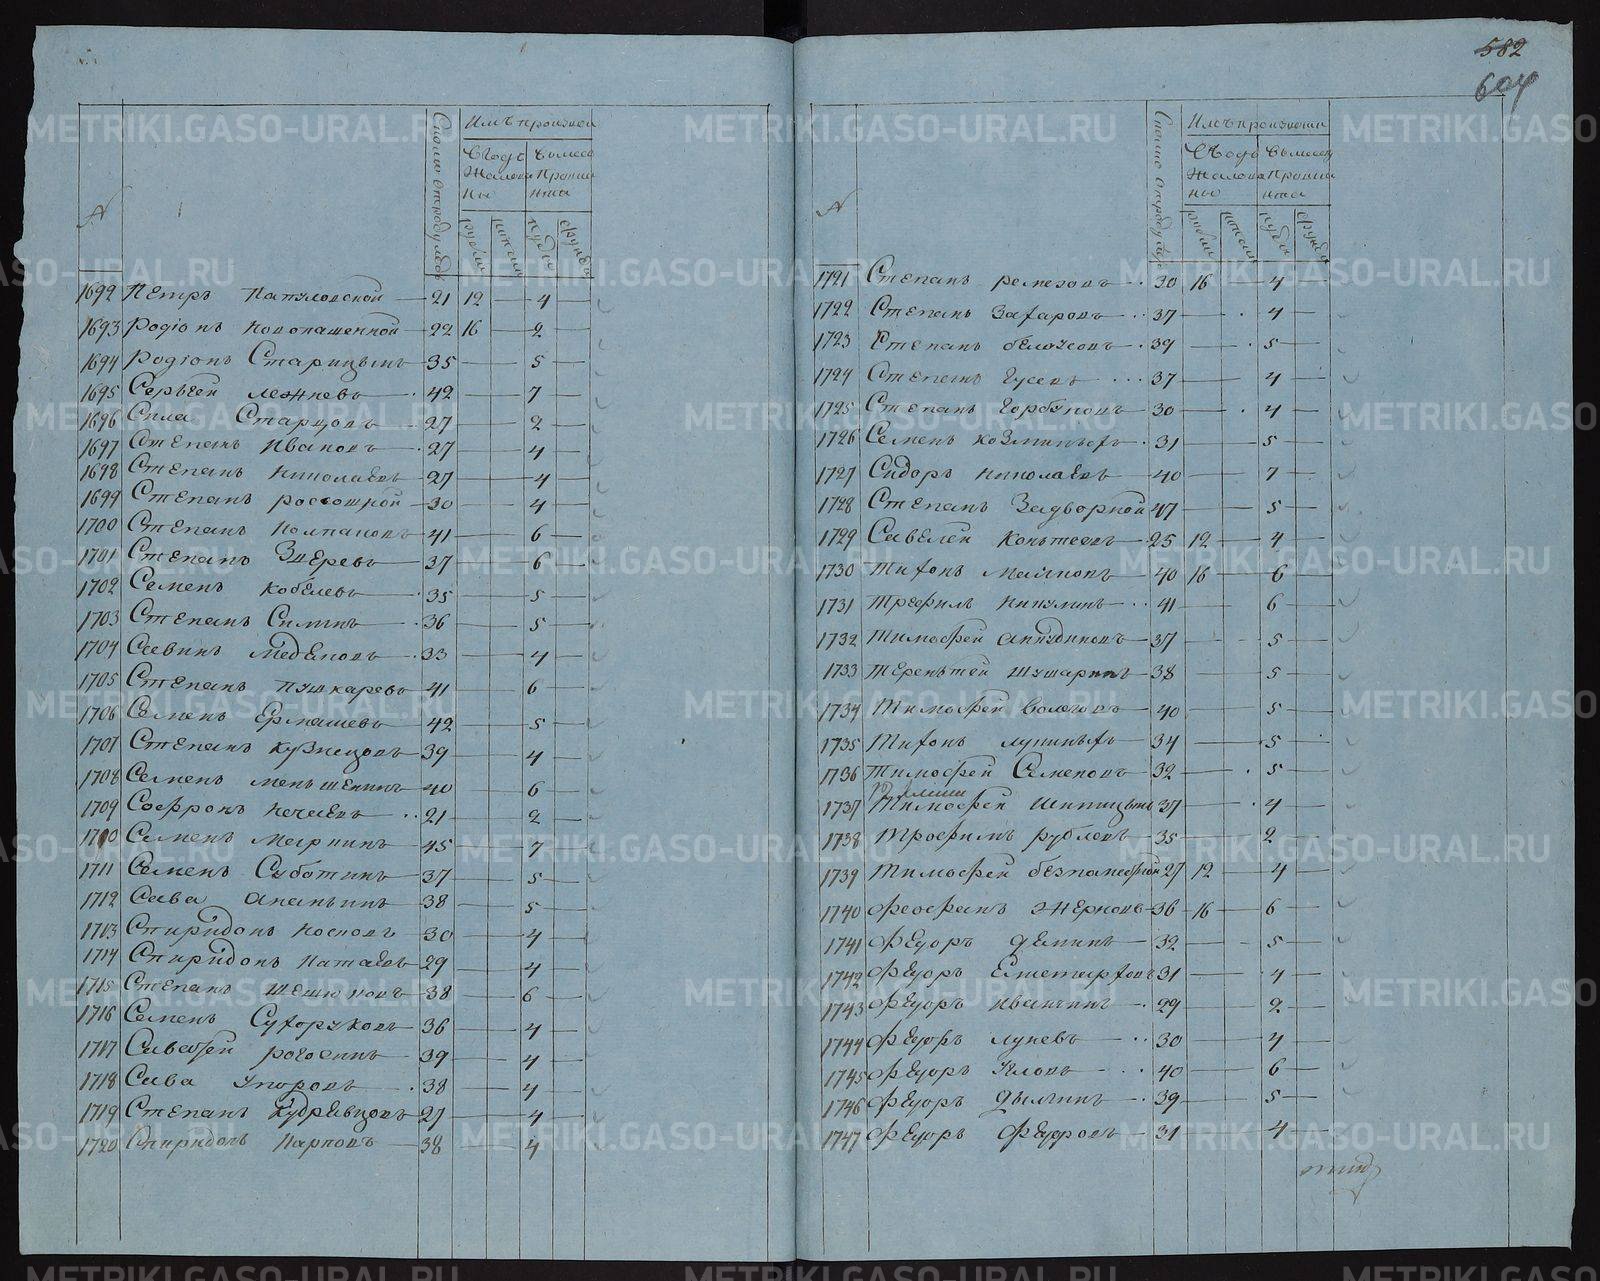 582
604
Имъ произвои
Вгодъ
Жалова
ны
Вмесе
Провиа
нта
рубли
пуды
фунды
№
1692 Петръ 21 12 4
1693 родіонъ новопашенной 22 16 2
1694 родіонъ Старицынъ 35 5
1695 Сергѣй лежневъ 42 7
1696 Сила Старцовъ 27 2
1697 Степанъ Ивановъ 27 4
1698 Степанъ николаевъ 27 4
1699 Степанъ роскошной 30 4
1700 Степанъ Колпаковъ 41 6
1701 Степанъ Зверевъ 37 6
1702 Семенъ кобелевъ 35 5
1703 Степанъ Силинъ 36 5
1704 Савинъ Меденовъ 33 4
1705 Степанъ пушкаревъ 41 6
1706 Семенъ Ермашевъ 42 5
1707 Степанъ кузнецовъ 39 4
1708 Семенъ меньшенинъ 40 6
1709 Софронъ нечаевъ 21 2
1710 Семенъ Меркинъ 45 7
1711 Семенъ Суботинъ 37 5
1712 Сава ананьинъ 38 5
1713 Спиридонъ Носковъ 30 4
1714 Спиридонъ Натаевъ 29 4
1715 Степанъ шешуковъ 38 6
1716 Семенъ Сухоруковъ 36 4
1717 Савватей рогозинъ 39 4
1718 Сава Упоровъ 38 4
1719 Степанъ кудревцовъ 27 4
1720 Спиридонъ Карповъ 38 4
Имъ произвоии
Вгодъ
Жалова
ные
Вмесец
Провиа
нта
рубли
пуды
фунды
№
1721 Степанъ ремезовъ 30 16 4
1722 Степанъ Захаровъ 37 4
1723 Степанъ белоусовъ 39 5
1724 Степанъ Гусевъ 37 4
1725 Степанъ Горбуновъ 30 4
1726 Семенъ козминыхъ 31 5
1727 Сидоръ николаевъ 40 7
1728 Степанъ Задворной 47 5
1729 Савелей Коптеевъ 25 12 4
1730 тихонъ 40 16 6
1731 трефилъ никулинъ 41 6
1732 тимофей аникиновъ 37 5
1733 терентей шушаринъ 38 5
1734 тимофей вологовъ 40 5
1735 тихонъ лупиныхъ 34 5
1736 тимофей Семеновъ 32 5
1737 тимофей шипицынъ 37 4
1738 трофимъ рублевъ 35 2
1739 тимофей 27 12 4
1740 феофанъ жерновъ 36 16 6
1741 федоръ деминъ 32 5
1742 федоръ 31 4
1743 федоръ иванчинъ 29 2
1744 федоръ луневъ 30 4
1745 федоръ Уаловъ 40 6
1746 федоръ дылдинъ 39 5
1747 федоръ федоровъ 31 4
METRIKI.GASO-URAL.RU